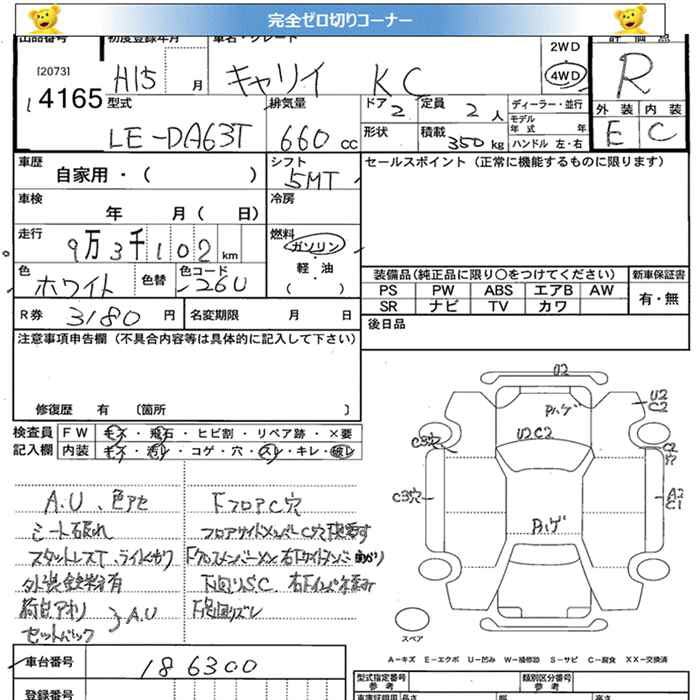 完全ゼロ切りコーナー
出品番号 初度登録年月 車名・グレード
2WD
4WD
[2073]
4165
H15 月 キャリイ KC
R
型式 排気量 ドア 2 定員 2 人 ディーラー・並行
モデル
年式 年
外装 内装
LE-DA63T 660 cc 形状 積載 350 kg ハンドル 左・右
E C
車歴 自家用・( ) シフト 5MT セールスポイント(正常に機能するものに限ります)
車検 年 月( 日) 冷房
走行 9万3千102 km 燃料 ガソリン
軽・油
( )
色 ホワイト 色替 色コード 26U
装備品(純正品に限り○をつけてください) 新車保証書
PS PW ABS エアB AW 有・無
SR ナビ TV カワ
R券 3180 円 名変期限 月 日 後日品
注意事項申告欄(不具合内容等は具体的に記入して下さい)
修復歴 有 〔箇所 〕
検査員 FW キズ・飛石・ヒビ割・リペア跡・×要
記入欄 内装 キズ・汚レ・コゲ・穴・スレ・キレ・破レ
U2
Pハゲ
U2
C2
U2C2
C3穴
C2
穴
C3穴
A2
C1
Pハゲ
A.U、色アセ
シート破れ
スタットレスT、ライトくもり
荷台アオリ
セットバック
A.U
FフロアC穴
下廻りS.C
スペア
A-キズ E-エクボ U-凹み W-補修跡 S-サビ C-腐食 XX-交換済
車台番号 186300
登録番号
型式指定番号
参考
類別区分番号
参考